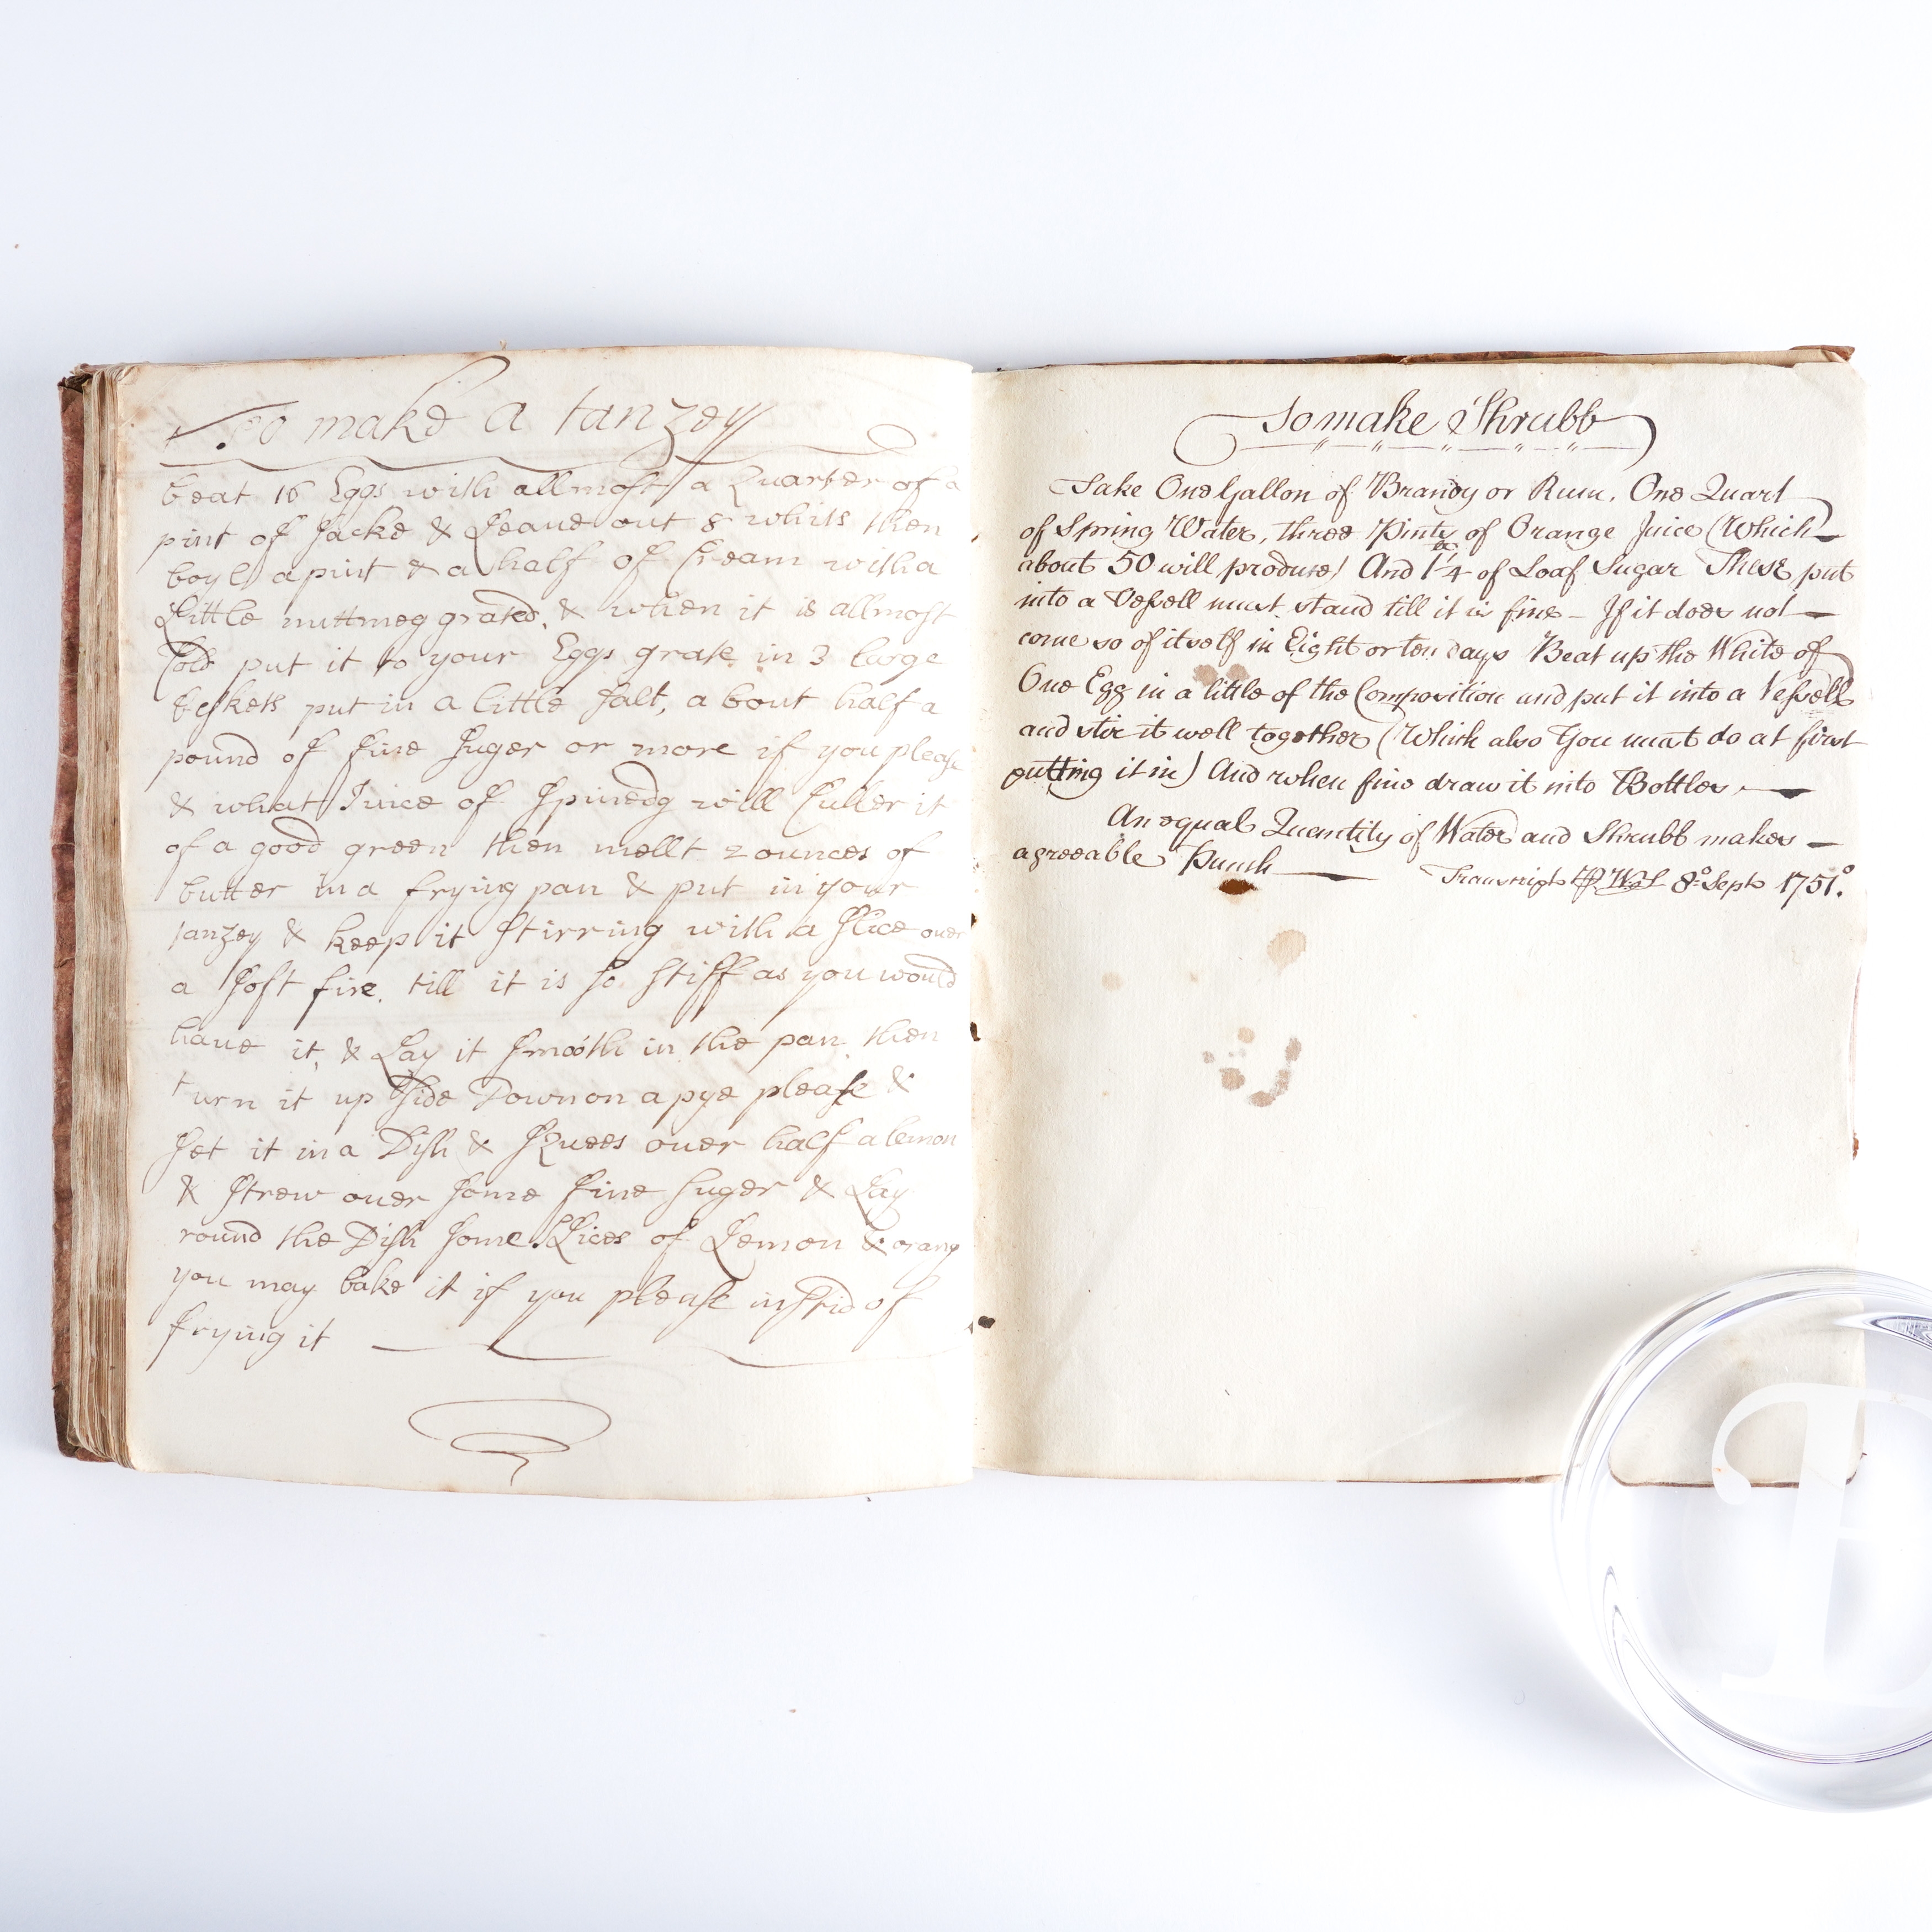 To make a tanzey
beat 16 Eggs with allmost a Quarter of a
pint of Sacke & Leave out 8 whits then
boyl a pint & a half of Cream with a
Little nuttmeg grated, & when it is allmost
Cold put it to your Eggs grate in 3 large
beskets put in a little Salt, a bout half a
pound of fine Suger or more if you please
& what Juice of Spinedg will Culler it
of a good green then mellt 2 ounces of
butter in a frying pan & put in your
tanzey & keep it Stirring with a Slice over
a Soft fire. till it is So Stiff as you would
have it, & Lay it Smooth in the pan then
turn it up Side Down on a pye please &
Set it in a Dish & SQuees over half a lemon
& Strew over Some fine Suger & Lay
round the Dish Some Slices of Lemon & orang
you may bake it if you please insteid of
frying it
To make Shrubb
Take One Gallon of Brandy or Rum, One Quart
of Spring Water, three Pints of Orange Juice (Which
about 50 will produce) And 1 1/4 of Loaf Sugar These put
into a Vessell must stand till it is fine - If it does not
come so of itself in Eight or ten days Beat up the White of
One Egg in a little of the Composition and put it into a Vessell
and stir it well together (Which also You must do at first
putting it in) And when fine draw it into Bottles.
An equal Quantity of Water and Shrubb makes
agreeable Punch
Transcript 8º Sept 1751.